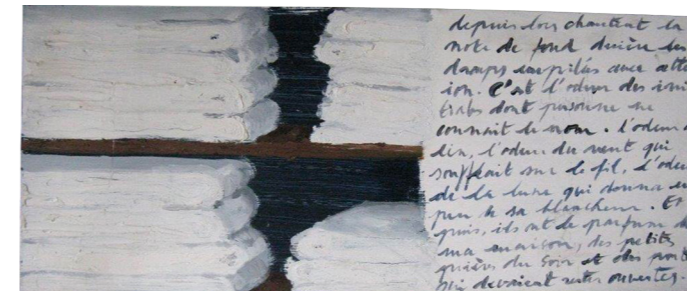 depuis lors chantent la
note de fond derrière les
draps empilés avec atte
ion. C'est l'odeur des ini
trabs dont personne ne
connait le nom. l'odeur d
lin, l'odeur du vent qui
soufflait sur le fil, l'odeu
de la lune qui donna un
peu de sa blancheur. Et
puis, ils ont le parfum de
ma maison, des petits
prières du soir et des port
qui devraient rester ouvertes.